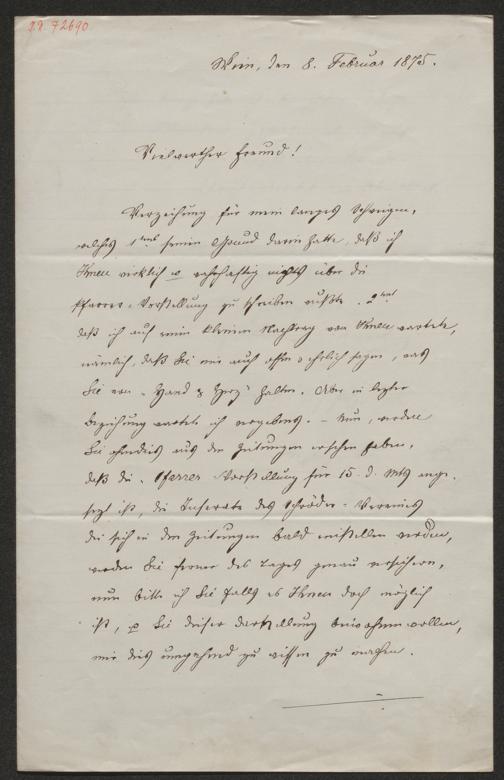 I.N. 72690
Wien, den 8. Februar 1875.
Vielwerther Freund!
Verzeihung für mein langes Schweigen,
welches 1tens seinen Grund darin hatte, daß ich
Ihnen wirklich u wahrhaftig nichts über die
Pfarrer-Vorstellung zu schreiben wußte. 2tens
daß ich auf einen kleinen von Ihnen wartete,
nämlich, daß Sie mir auch offen u ehrlich sagen, was
Sie von "Hand u Herz" halten. Aber in letzter
Beziehung wartete ich vergebens. – Nun, werden
Sie ohnedies aus den Zeitungen ersehen haben,
daß die "Pfarrer-Vorstellung für 15. d. Mts ange-
setzt ist, die Inserate des Schröder-Vereines
die sich in den Zeitungen bald einstellen werden,
werden Sie ferner des Tages genau versichern,
nun bitte ich Sie falls es Ihnen doch möglich
ist, u Sie dieser Darstellung beiwohnen wollen,
mir dies umgehend zu wissen zu machen.